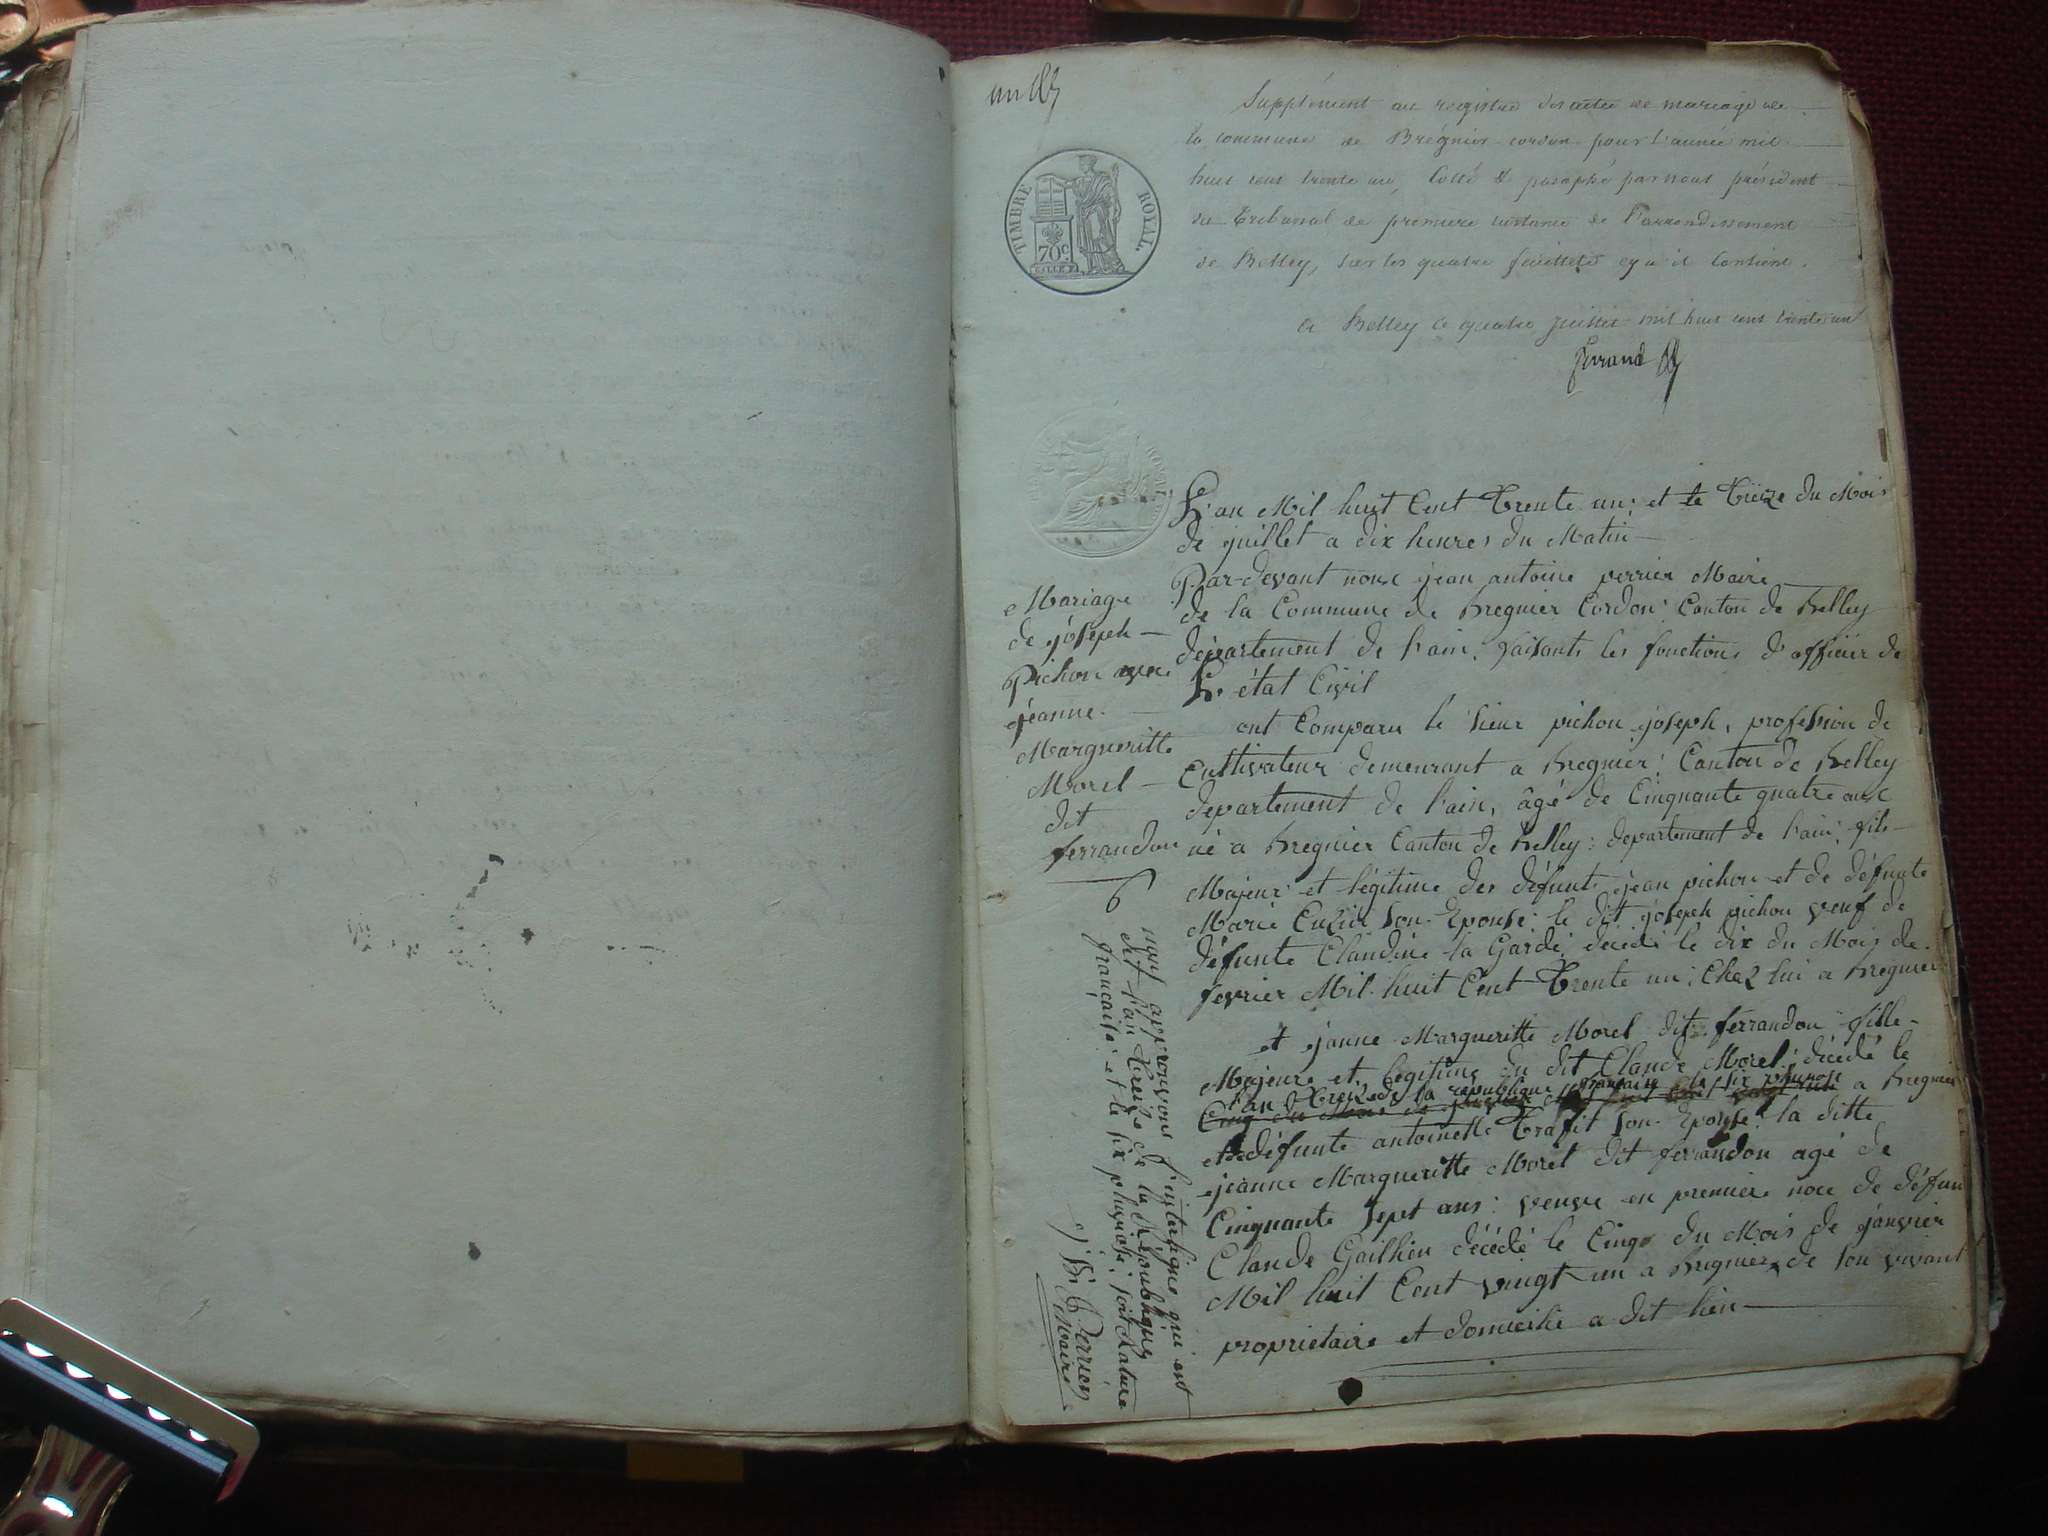 un
Supplément au registre des actes de mariage de
la commune de Brégnier cordon pour l'année mil
huit cent trente un, Cotté & paraphé par nous président
du tribunal de premiere instance de l'arrondissement
de Belley, sur les quatre feuillets qu'il contient.
a Belley ce quatre juillet mil huit cent trente un
Ferrand
TIMBRE ROYAL.
70c.
L'an Mil huit Cent Trente un; et le Treize du Mois
de juillet a dix heures du Matin
Par-devant nous jean antoine perrier Maire
de la Commune de Bregnier Cordon Canton de Belley
département de l'ain, faisants les fonctions d'officier de
L'état Civil
Mariage
de joseph
Pichon avec
jeanne
Margueritte
Morel
dit
ferrandon
6
ont Comparu le sieur pichon joseph, profession de
Cultivateur demeurant a Bregnier; Canton de Belley
departement de l'ain, âgé de Cinquante quatre ans
né a Bregnier Canton de Belley: departement de l'ain: fils
Majeur et légitime des défunts jean pichon et de défunte
Marie Cuzin son Epouse: le dit joseph pichon veuf de
défunte Claudine la Garde; décédé le dix du Mois de
fevrier Mil huit Cent Trente un; Chez lui a Bregnier
et jeanne Margueritte Morel dit ferrandon fille
Majeure et légitime du dit Claude Morel; décédé le
l'an Treize de la republique française le six pluviose
Cinq du Mois de janvier Mil huit Cent a Bregnier
et de défunte antoinette Trafit son Epouse la ditte
jeanne Margueritte Morel dit ferrandon agé de
Cinquante sept ans: veuve en premiere noce de défun
Claude Gaillieu décédé le Cinq du Mois de janvier
Mil huit Cent vingt un a Bregnier de son vivant
proprietaire et domicilié a dit lieu
nous approuvons l'interligne qui est
dit l'an treize de la république
française et le six pluviose; soit Rature
j. A. Perrier
Maire